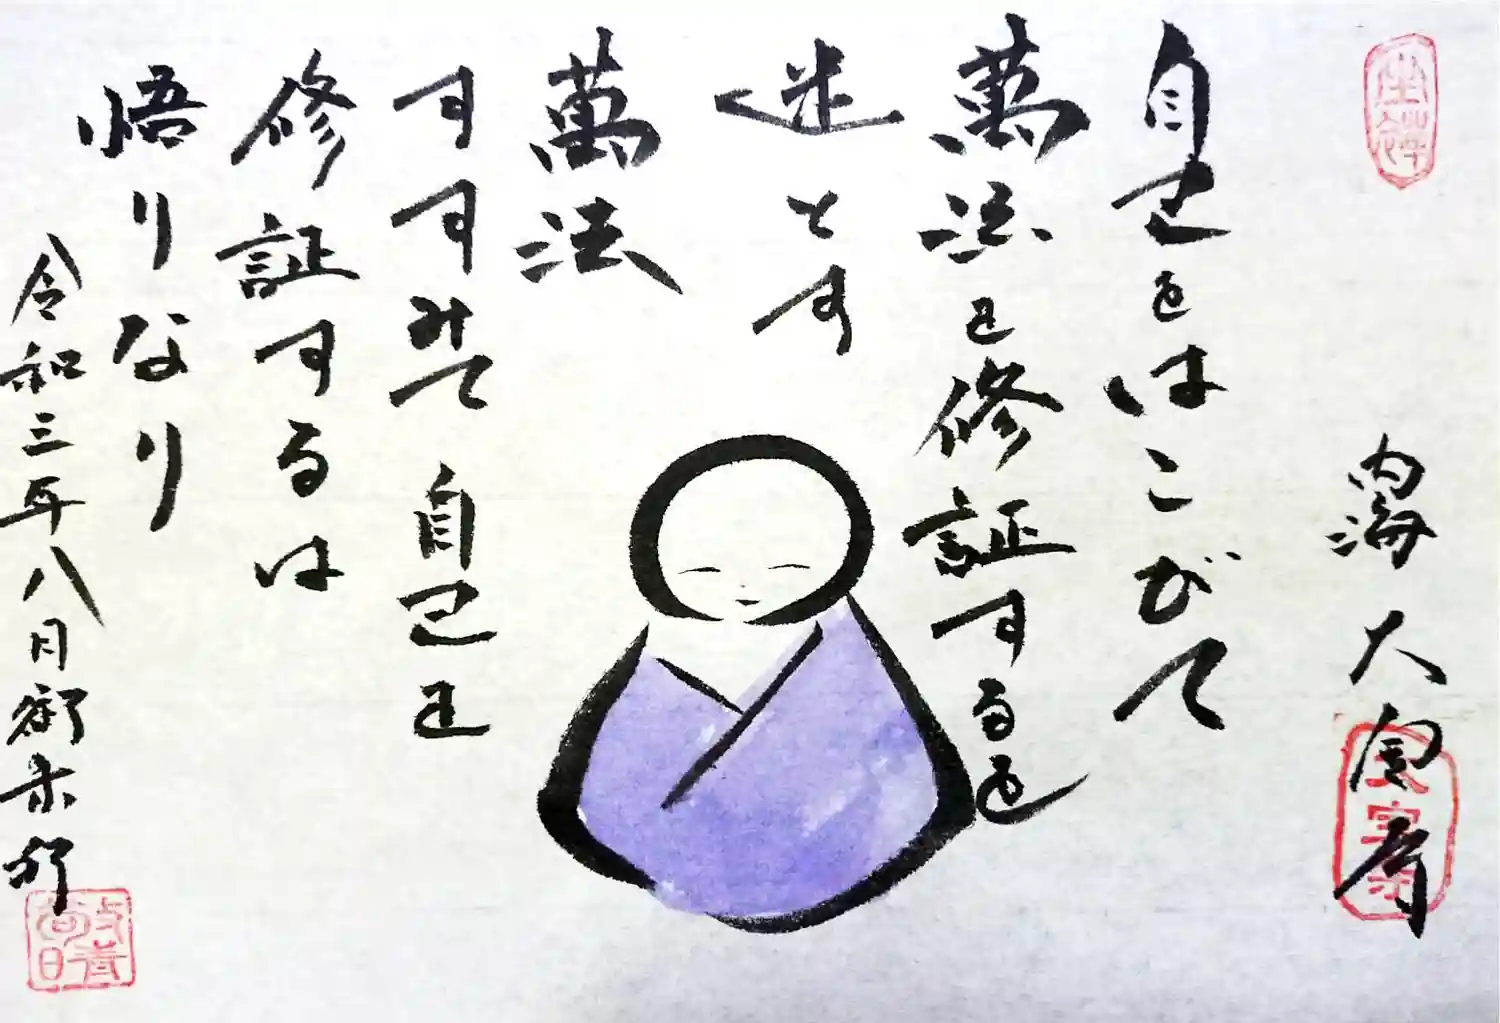 内海 大空寺
自己をはこびて
萬法を修証するを
迷とす
萬法
すすみて自己を
修証するは
悟りなり
令和三年八月
坐禅